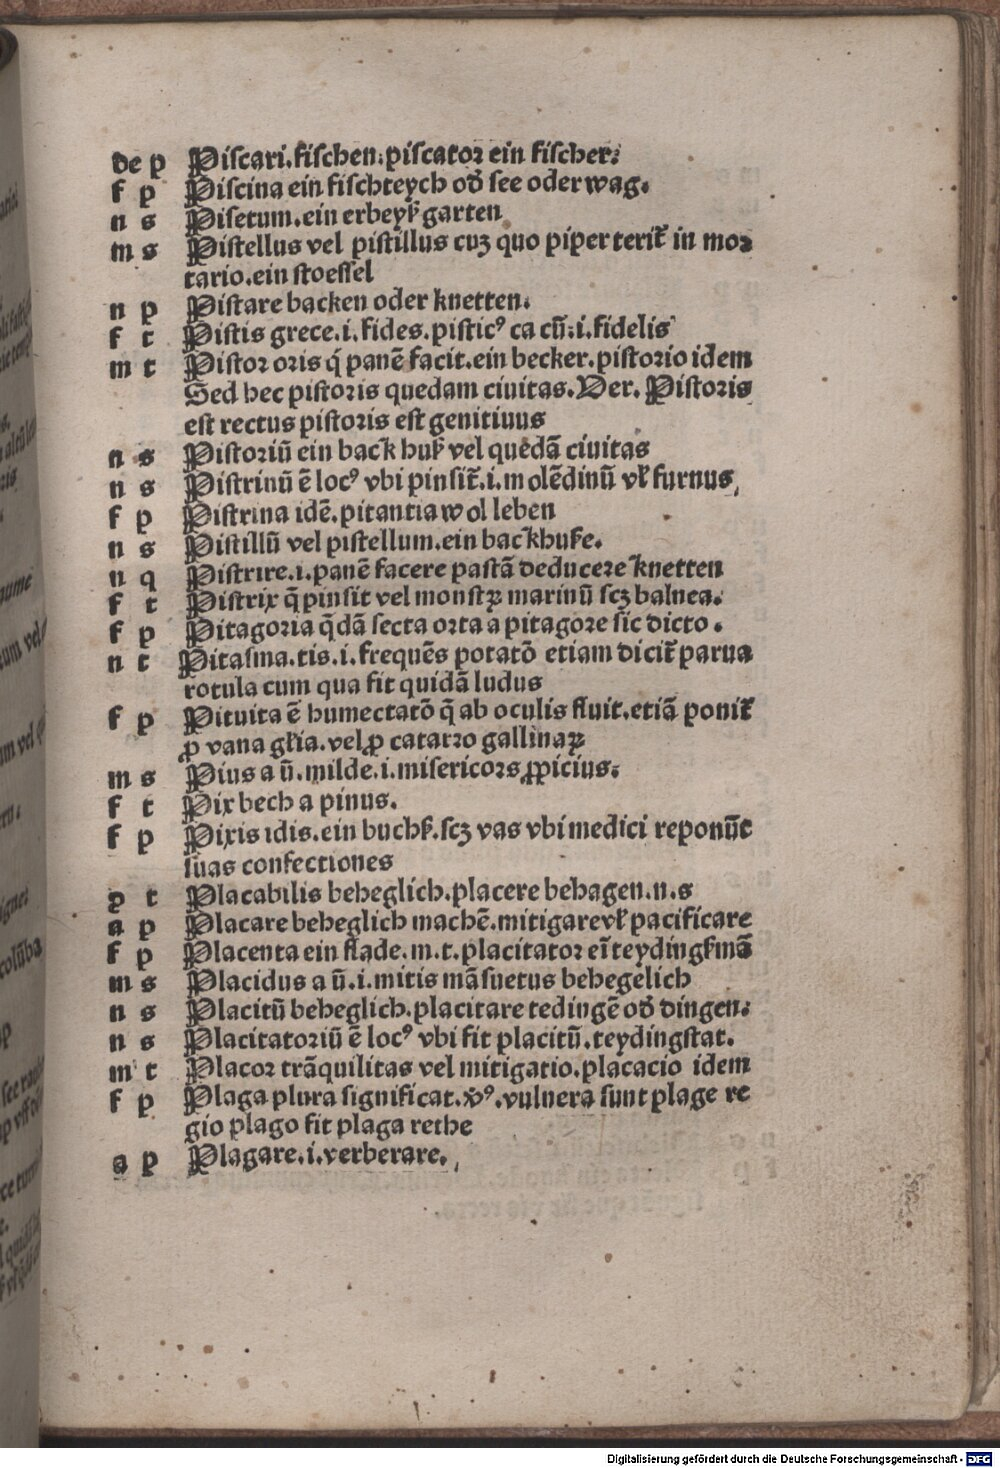 de p Piscari.fischen.piscator ein fischer:
f p Piscina ein fischteych od̓ see oder wag.
n s Pisetum.ein erbeyß garten
m s Pistellus vel pistillus cuʒ quo piper terit̃ in mor
tario.ein stoessel
n p Pistare backen oder knetten.
f t Pistis grece.i.fides.pisticꝰ ca cũ:.i.fidelis
m t Pistor oris q̇ panẽ facit.ein becker.pistorio idem
Sed hec pistoris quedam ciuitas.Ver. Pistoris
est rectus pistoris est genitiuus
n s Pistoriũ ein back huß vel quedã ciuitas
n s Pistrinũ ẽ locꝰ vbi pinsit̃.i.molẽdinũ vl̃ furnus,
f p Pistrina idẽ.pitantia wol leben
n s Pistillũ vel pistellum.ein backhuße.
n q Pistrire.i.panẽ facere pastã deducere knetten
f t Pistrix q̃ pinsit vel monstꝝ marinũ scʒ balnea.
f p Pitagoria q̃dã secta orta a pitagore sic dicto.
n t Pitasma.tis.i.frequẽs potatõ etiam dicit̃ parua
rotula cum qua fit quidã ludus
f p Pituita ẽ humectatõ q̃ ab oculis fluit.etiã ponit̃
ꝓ vana gl̃ia.vel ꝓ catarro gallinaꝝ
m s Pius a ũ.milde.i.misericors ꝓpicius:
f t Pix bech a pinus.
f p Pixis idis.ein buchß.scʒ vas vbi medici reponũt
suas confectiones
p t Placabilis beheglich.placere behagen.n.s
a p Placare beheglich machẽ.mitigare vl̃ pacificare
f p Placenta ein flade.m.t.placitator eĩ teydingßmã
m s Placidus a ũ.i.mitis mãsuetus behegelich
n s Placitũ beheglich.placitare tedingẽ od̓ dingen:
n s Placitatoriũ ẽ locꝰ vbi fit placitũ.teydingstat.
m t Placor trãquilitas vel mitigatio.placacio idem
f p Plaga plura significat.v̓ꝰ.vulnera sunt plage re
gio plago fit plaga rethe
a p Plagare.i.verberare.,
Digitalisierung gefördert durch die Deutsche Forschungsgemeinschaft - DFG